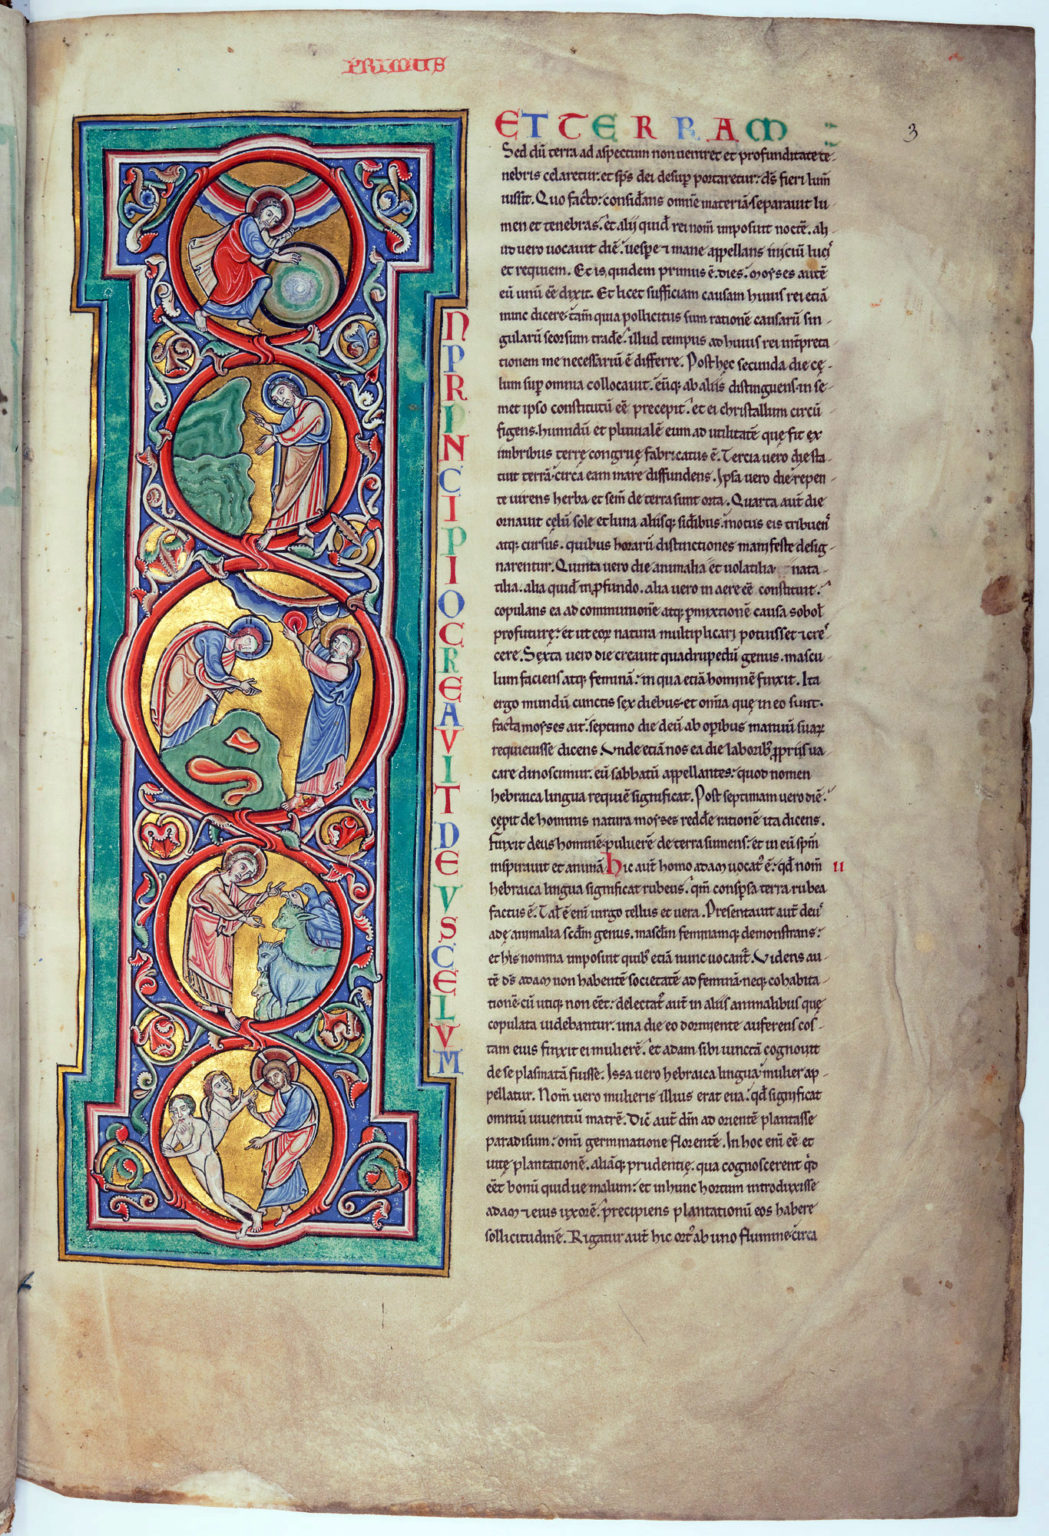 PRIMUS
3
NPRINCIPIO CREAVIT DEVS CELVM
ET TERRAM
Sed dū terra ad aspectum non ueniret et profunditate te-
nebris celaretur. et sp̄s dei desup̄ portaretur: ds̄ fieri lum̄
iussit. Quo facto: considerans omnē materiā separauit lu
men et tenebras. et alii quidē rei nom̄ imposuit noctē. ali
ud uero uocauit diē. uespe᷑ et mane appellans iniciū luc᷑
et requiem. Et is quidem primus ē dies. moyses autē
eū unū eē dixit. Et licet sufficiam causam huius rei etiā
nunc dicere. tam̄ quia pollicitus sum rationē causarū sin
gularū seorsum trade᷑. illud tempus ad huius rei int̄preta
tionem me necessariū ē differre. Post hęc secunda die cę-
lum sup̄ omnia collocauit. eūq; ab aliis distinguens in se
met ipso constitutū eē precepit. et ei christallum circū
figens. humidū et pluuialē eum ad utilitatē quę fit ex
imbribus terrę congruę fabricatus ē. Tercia uero die sta-
tuit terrā. circa eam mare diffundens. Ipsa uero die repen-
te uirens herba et sem̄ de terra sunt orta. Quarta aut̄ die
ornauit cęlū sole et luna aliisq; sideribus. motus eis tribuen᷑
atq; cursus. quibus horarū distinctiones manifeste desig-
narentur. Quinta uero die animalia et uolatilia nata-
tilia. alia quidē in p̄fundo. alia uero in aere eē constituit.
copulans ea ad communionē atq; p̄mixtionē causa sobol᷑
profuturę. et ut eor̄ natura multiplicari potuisset & cre᷑
cere. Sexta uero die creauit quadrupedū genus. mascu
lum faciens atq; feminā. in qua etiā hominē finxit. Ita
ergo mundū cunctis sex diebus et om̄ia quę in eo sunt
facta moyses ait. septimo die deū ab op̄ibus mutuū suar̄
requieuisse dicens. Unde etiā nos ea die laborib; p̄prijs ua
care dinoscimur. eū sabbatū appellantes. quod nomen
hebraica lingua requiē significat. Post septimam uero diē
cępit de hominis natura moyses redde᷑ rationē ita dicens.
Finxit deus hominē puluerē de terra sumens. et in eū sp̄m
inspirauit et animā. hic aut̄ homo adam uocat᷑ ē. qd̄ nom̄ II
hebraica lingua significat rubeus. qm̄ consp̄sa terra rubea
factus ē. Tal᷑ ē eni᷑ uirgo tellus et uera. Presentauit aut̄ deus
adę animalia scdm̄ genus. masclm̄ feminamq; demonstrans.
et his nomina imposuit quib; etiā nunc uocant᷑. Uidens au-
tē ds̄ adam non habentē societatē ad feminā neq; cohabita
tionē. cū utiq; non eēt. delectat᷑ aut̄ in aliis animalibus quę
copulata uidebantur. una die eo dormiente auferens cos-
tam eius finxit ei mulierē. et adam sibi iunctā cognouit
de se plasmatā fuisse. Issa uero hebraica lingua mulier ap-
pellatur. Nom̄ uero mulieris illius erat eua. qd̄ significat
omniū uiuentiū matrē. Dic̄ aut̄ dm̄ ad orientē plantasse
paradisum. omī germinatione florentē. In hoc enī eē et
uitę plantationē. aliāq; prudentię. qua cognoscerent qd̄
eēt bonū quidue malum. et in hunc hortum introduxisse
adam & eius uxorē. precipiens plantationū eos habere
sollicitudinē. Rigatur aut̄ hic ort᷑ ab uno flumine circa